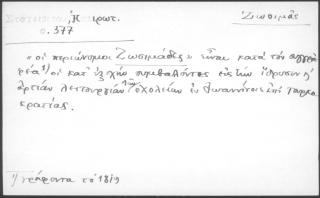 Ἠπειρωτ.
σ. 377
Ζωσιμᾶς
« οἱ περιώνυμοι Ζωσιμάδες » εἶναι κατὰ τὸν συγγρα-
φέα¹⁾ οἱ κατ' ἐξοχὴν συμβαλόντες εἰς τὴν ἵδρυσιν ἢ
ἀρτίαν λειτουργίαν τῶν σχολείων ἐν Ἰωαννίνοις ἐπὶ τουρκο
κρατίας.
1) γράφοντα τὸ 1819